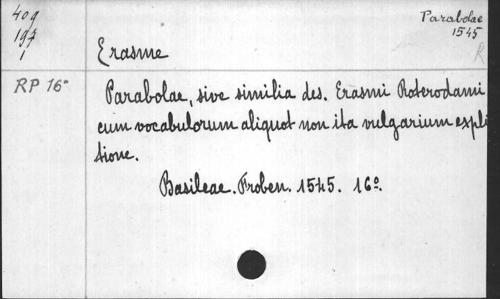 409
197
1
Parabolae
1545
R
Erasme
RP 16°
Parabolae, sive similia des. Erasmi Roterodami
cum vocabulorum aliquot non ita vulgarium expli
tione.
Basileae. Froben. 1545. 16°.